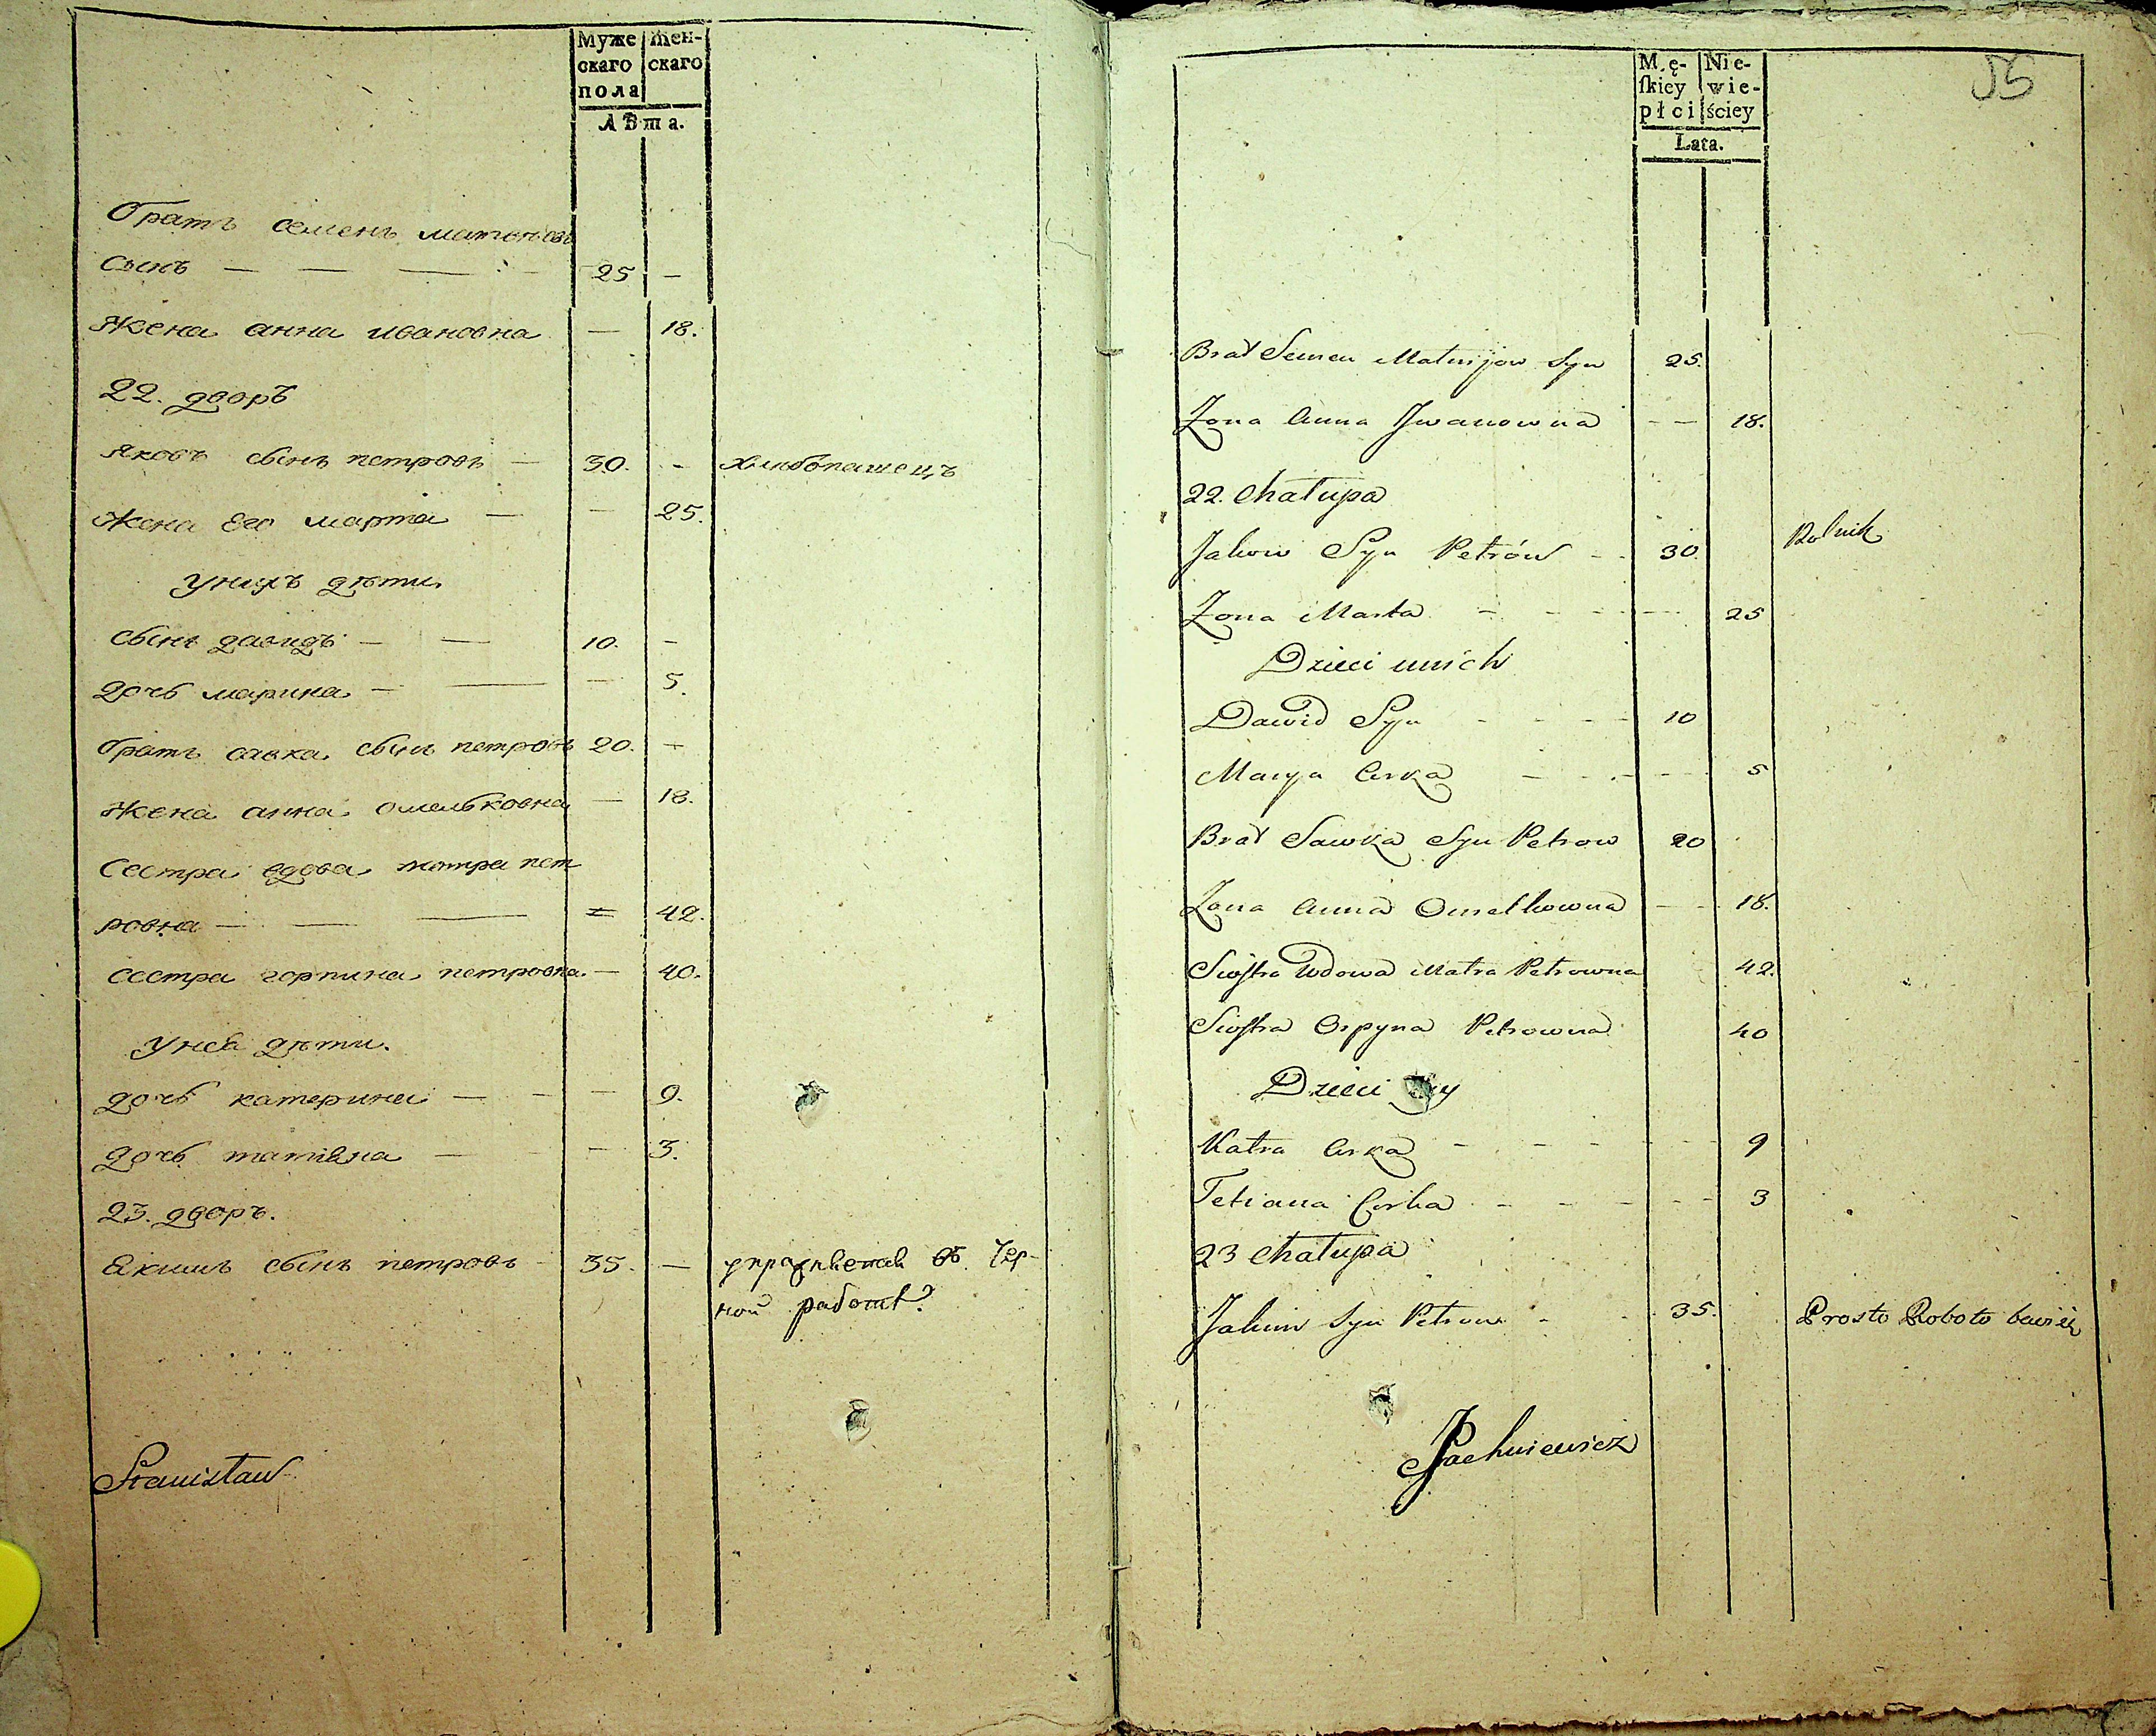 Муже скаго пола | жен- скаго
Лѣта.
братъ семенъ матвѣевъ
сынъ — — — 25 —
жена анна ивановна — 18.
22. дворъ
яковъ сынъ петровъ — 30. - хлибопашецъ
жена его марта — — 25.
унихъ дѣти
сынъ давидъ — — 10. -
дочь марина — — — 5.
братъ савка сынъ петровъ 20. -
жена анна омельковна — 18.
сестра вдова матра пет
ровна — — — = 42.
сестра горпина петровна. — 40.
унеи дѣти.
дочь катерина — - — 9.
дочь татіяна — — 3.
23. дворъ.
Якимъ сынъ петровъ - 35. — въ чер-
ной работѣ
Stanisław
Mę- skiey płci | Nie- wie- ściey
Lata.
55
Brat Semen Matwijow Syn 25.
Zona Anna Iwanowna - - 18.
22. Chałupa
Jakow Syn Petrów - - 30. Rolnik
Zona Marta - - - - 25
Dzieci unich
Dawid Syn - - - - 10
Marya Curka - - - - 5
Brat Sawka Syn Petrow 20
Zona Anna Omelkowna - - 18.
Siostra Wdowa Matra Petrowna 42.
Siostra Orpyna Petrowna 40
Dzieci
Katra Curka - - - - - 9
Tetiana Curka - - - - - 3
23 Chałupa
Jakim Syn Petrow - - 35. Prosto Roboto bawię
Pachniewicz